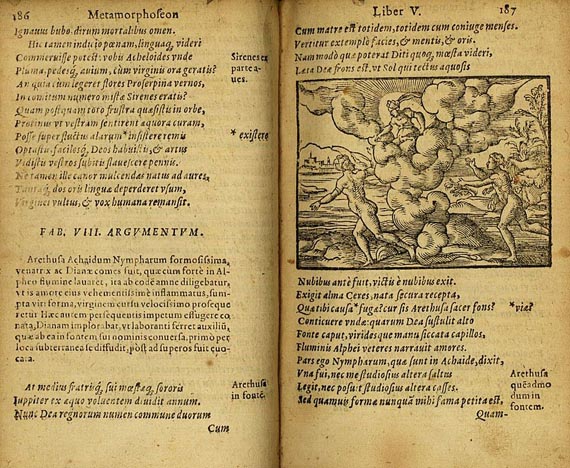 186 Metamorphoseon
Ignauus bubo, dirum mortalibus omen.
Hic tamen indicio pœnam, linguaq, videri
Commeruisse potest: vobis Acheloides vnde
Pluma, pedesq, auium, cùm virginis ora geratis?
An quia cùm legeret flores Proserpina vernos,
In comitum numero mistæ Sirenes eratis?
Quam postquam toto frustra quæsistis in orbe,
Protinus vt vestram sentirent æquora curam,
Posse super fluctus alarum * insistere remis
Optastis, facilesq, Deos habuistis, & artus
Vidistis vestros subitis flauescere pennis.
Ne tamen ille canor mulcendas natus ad aures,
Tantaq, dos oris linguæ deperderet vsum,
Virginei vultus, & vox humana remansit.
Sirenes ex
parte a-
ues.
* existere
FAB. VIII. ARGVMENTVM.
Arethusa Achaidum Nympharum formosissima,
venatrix ac Dianæ comes fuit, quæ cùm fortè in Al-
pheo flumine lauaret, ita ab eodē amne diligebatur,
vt is amore eius vehementissimè inflammatus, sum-
pta viri forma, virginem cursu velocissimo proseque
retur Hæc autem persequentis impetum effugere co
nata, Dianam implorabat, vt laboranti ferret auxiliū,
quæ ab ea in fontem sui nominis conuersa, primò per
loca subterranea se diffudit, pòst ad superos fuit quo-
cata.
At medius fratrisq, sui mœstæq, sororis
Iuppiter ex æquo voluentem diuidit annum.
Nunc Dea regnorum numen commune duorum
Arethusa
in fontē.
Cum
Liber V. 187
Cum matre est totidem, totidem cum coniuge menses.
Vertitur extemplò facies, & mentis, & oris.
Nam modò quæ poterat Diti quoq, mœsta videri,
Læta Deæ frons est, vt Sol qui tectus aquosis
Nubibus antè fuit, victis è nubibus exit.
Exigit alma Ceres, nata secura recepta,
Quæ tibi causa * fugæ? cur sis Arethusa sacer fons?
Conticuere vndæ: quarum Dea sustulit alto
Fonte caput, virides que manu siccata capillos,
Fluminis Alphei veteres narrauit amores.
Pars ego Nympharum, quæ sunt in Achaide, dixit,
Vna fui, nec me studiosius altera saltus
Legit, nec posuit studiosius altera casses.
Sed quamuis formæ nunquā mihi fama petita est,
* viæ?
Arethusa
quēadmo
dum in
fontem.
Quam-